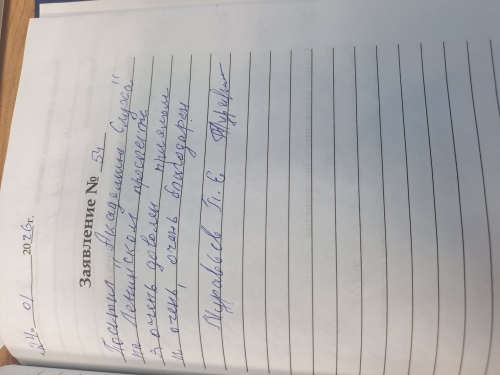 "24" 01 2026 г.
Заявление № 54
Посетил "Академию Слуха"
на Ленинском проспекте
Я очень доволен приемом
и очень, очень благодарен
Муравьев П. Е.